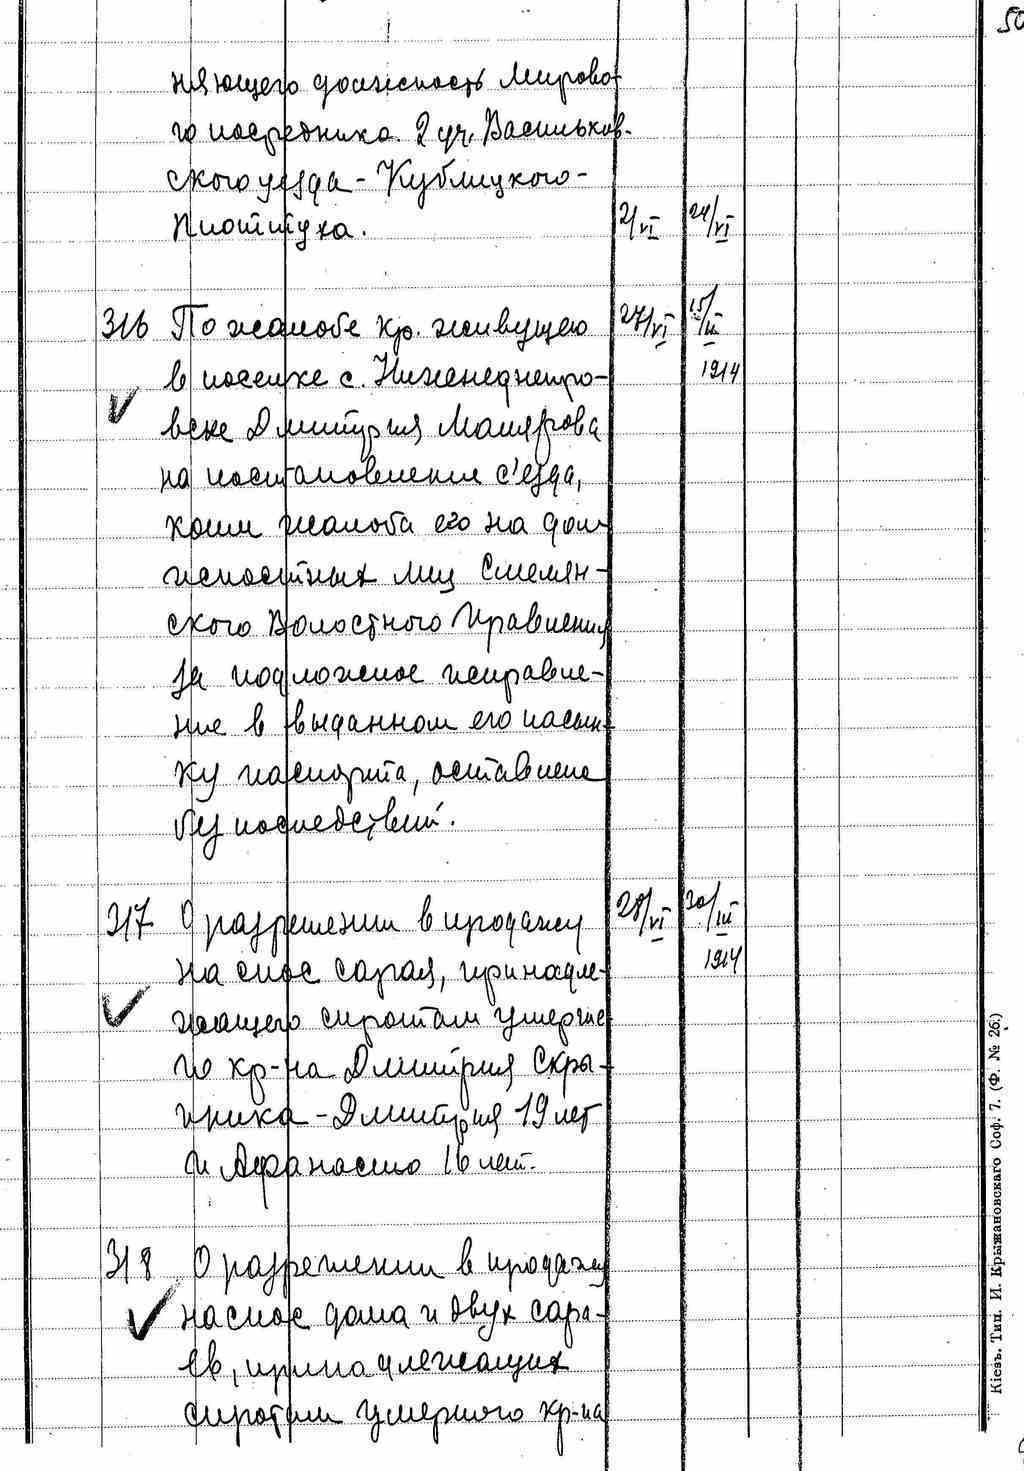 50
няющего должность Мирово-
го посредника 2 уч. Васильков-
ского уезда - Кублицкого-
Пиоттуха. 21/VI 24/VI
316 По жалобе кр. живущего 27/VI 15/II
в поселке с. Нижнеднепро- 1914
вске Дмитрия Маля
на постановление с'езда,
коим жалоба его на дол-
жностных лиц Смелян-
ского Волостного Правления
за подложное исправле-
ние в выданном его пасын-
ку паспорта, оставлена
без последствий.
317 О разрешении в продажу 28/VI 30/III
на снос сарая, принадле- 1914
жащего сиротам умерше
го кр-на Дмитрия Скры-
пника - Дмитрия 19 лет
и Афанасию 16 лет.
318 О разрешении в продажу
на снос дома и двух сара-
ев, принадлежащих
сиротам умершого кр-на
Кіевъ. Тип. И. Крыжановскаго Соф. 7. (Ф. № 26.)